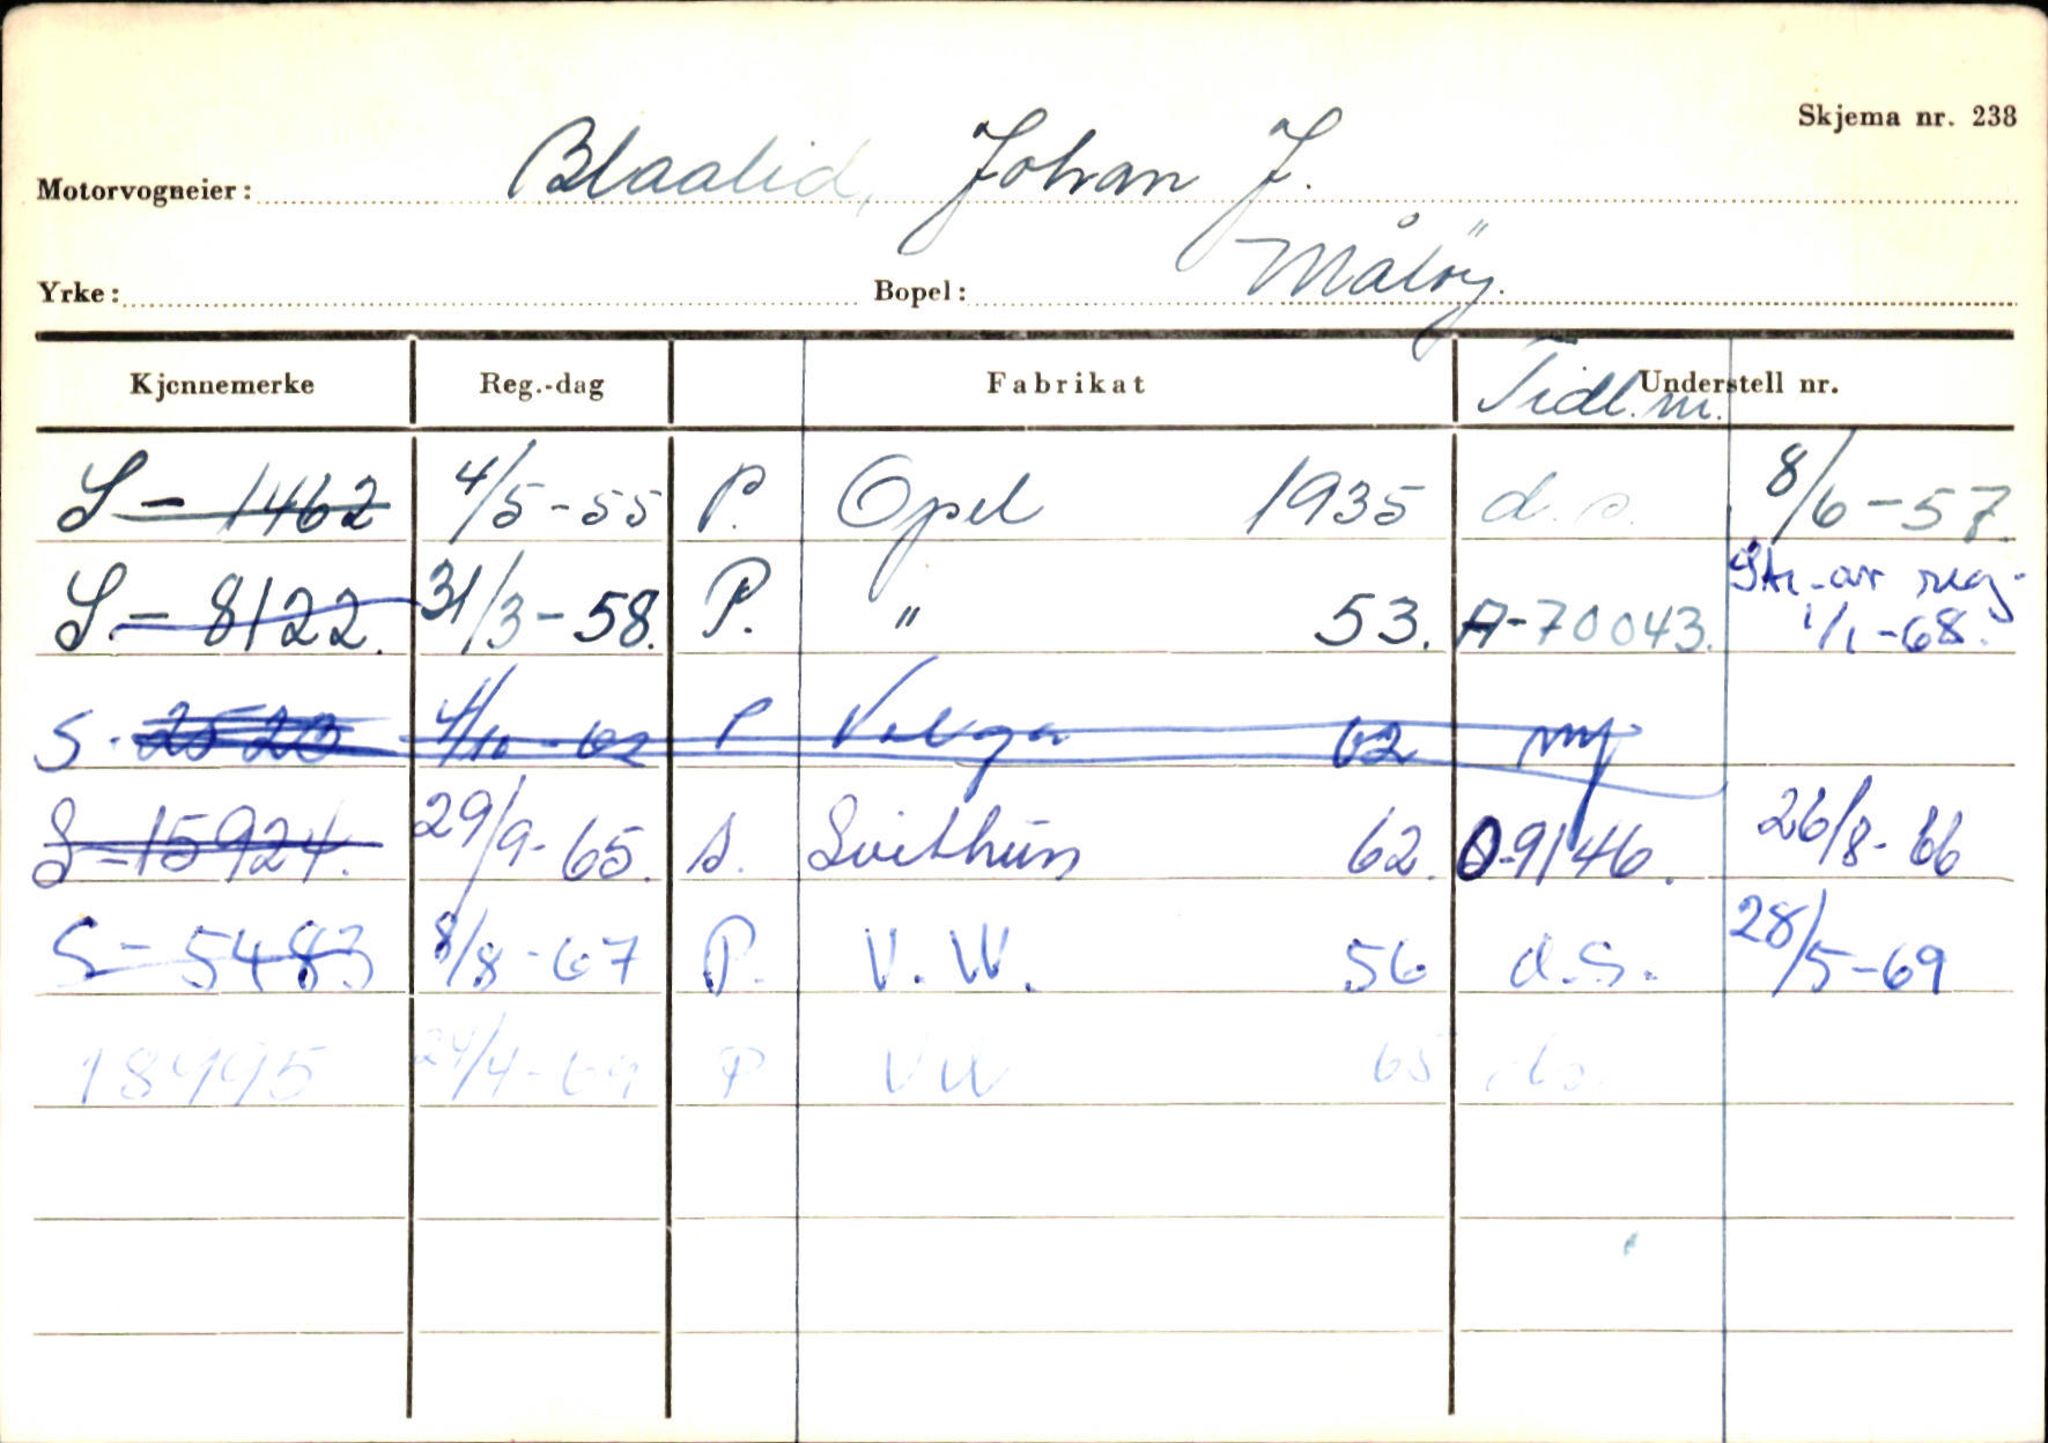 Skjema nr. 238
Motorvogneier: Blaalid, Johan J.
Yrke: Bopel: Måløy.
Kjennemerke Reg.-dag Fabrikat Tidl. nr. Understell nr.
S - 1462 4/5-55 P. Opel 1935 d.s. 8/6-57
S - 8122. 31/3-58. P. " 53. A-70043. Str. av reg.
1/1-68.
S. 4/10-62 P Volga 62 ny
S-15924. 29/9-65. s. Svithun 62. O-9146. 26/8-66
S-5483 8/8-67 P. V.W. 56 d.s. 28/5-69
18495 24/4-69 P VW 65 ds.